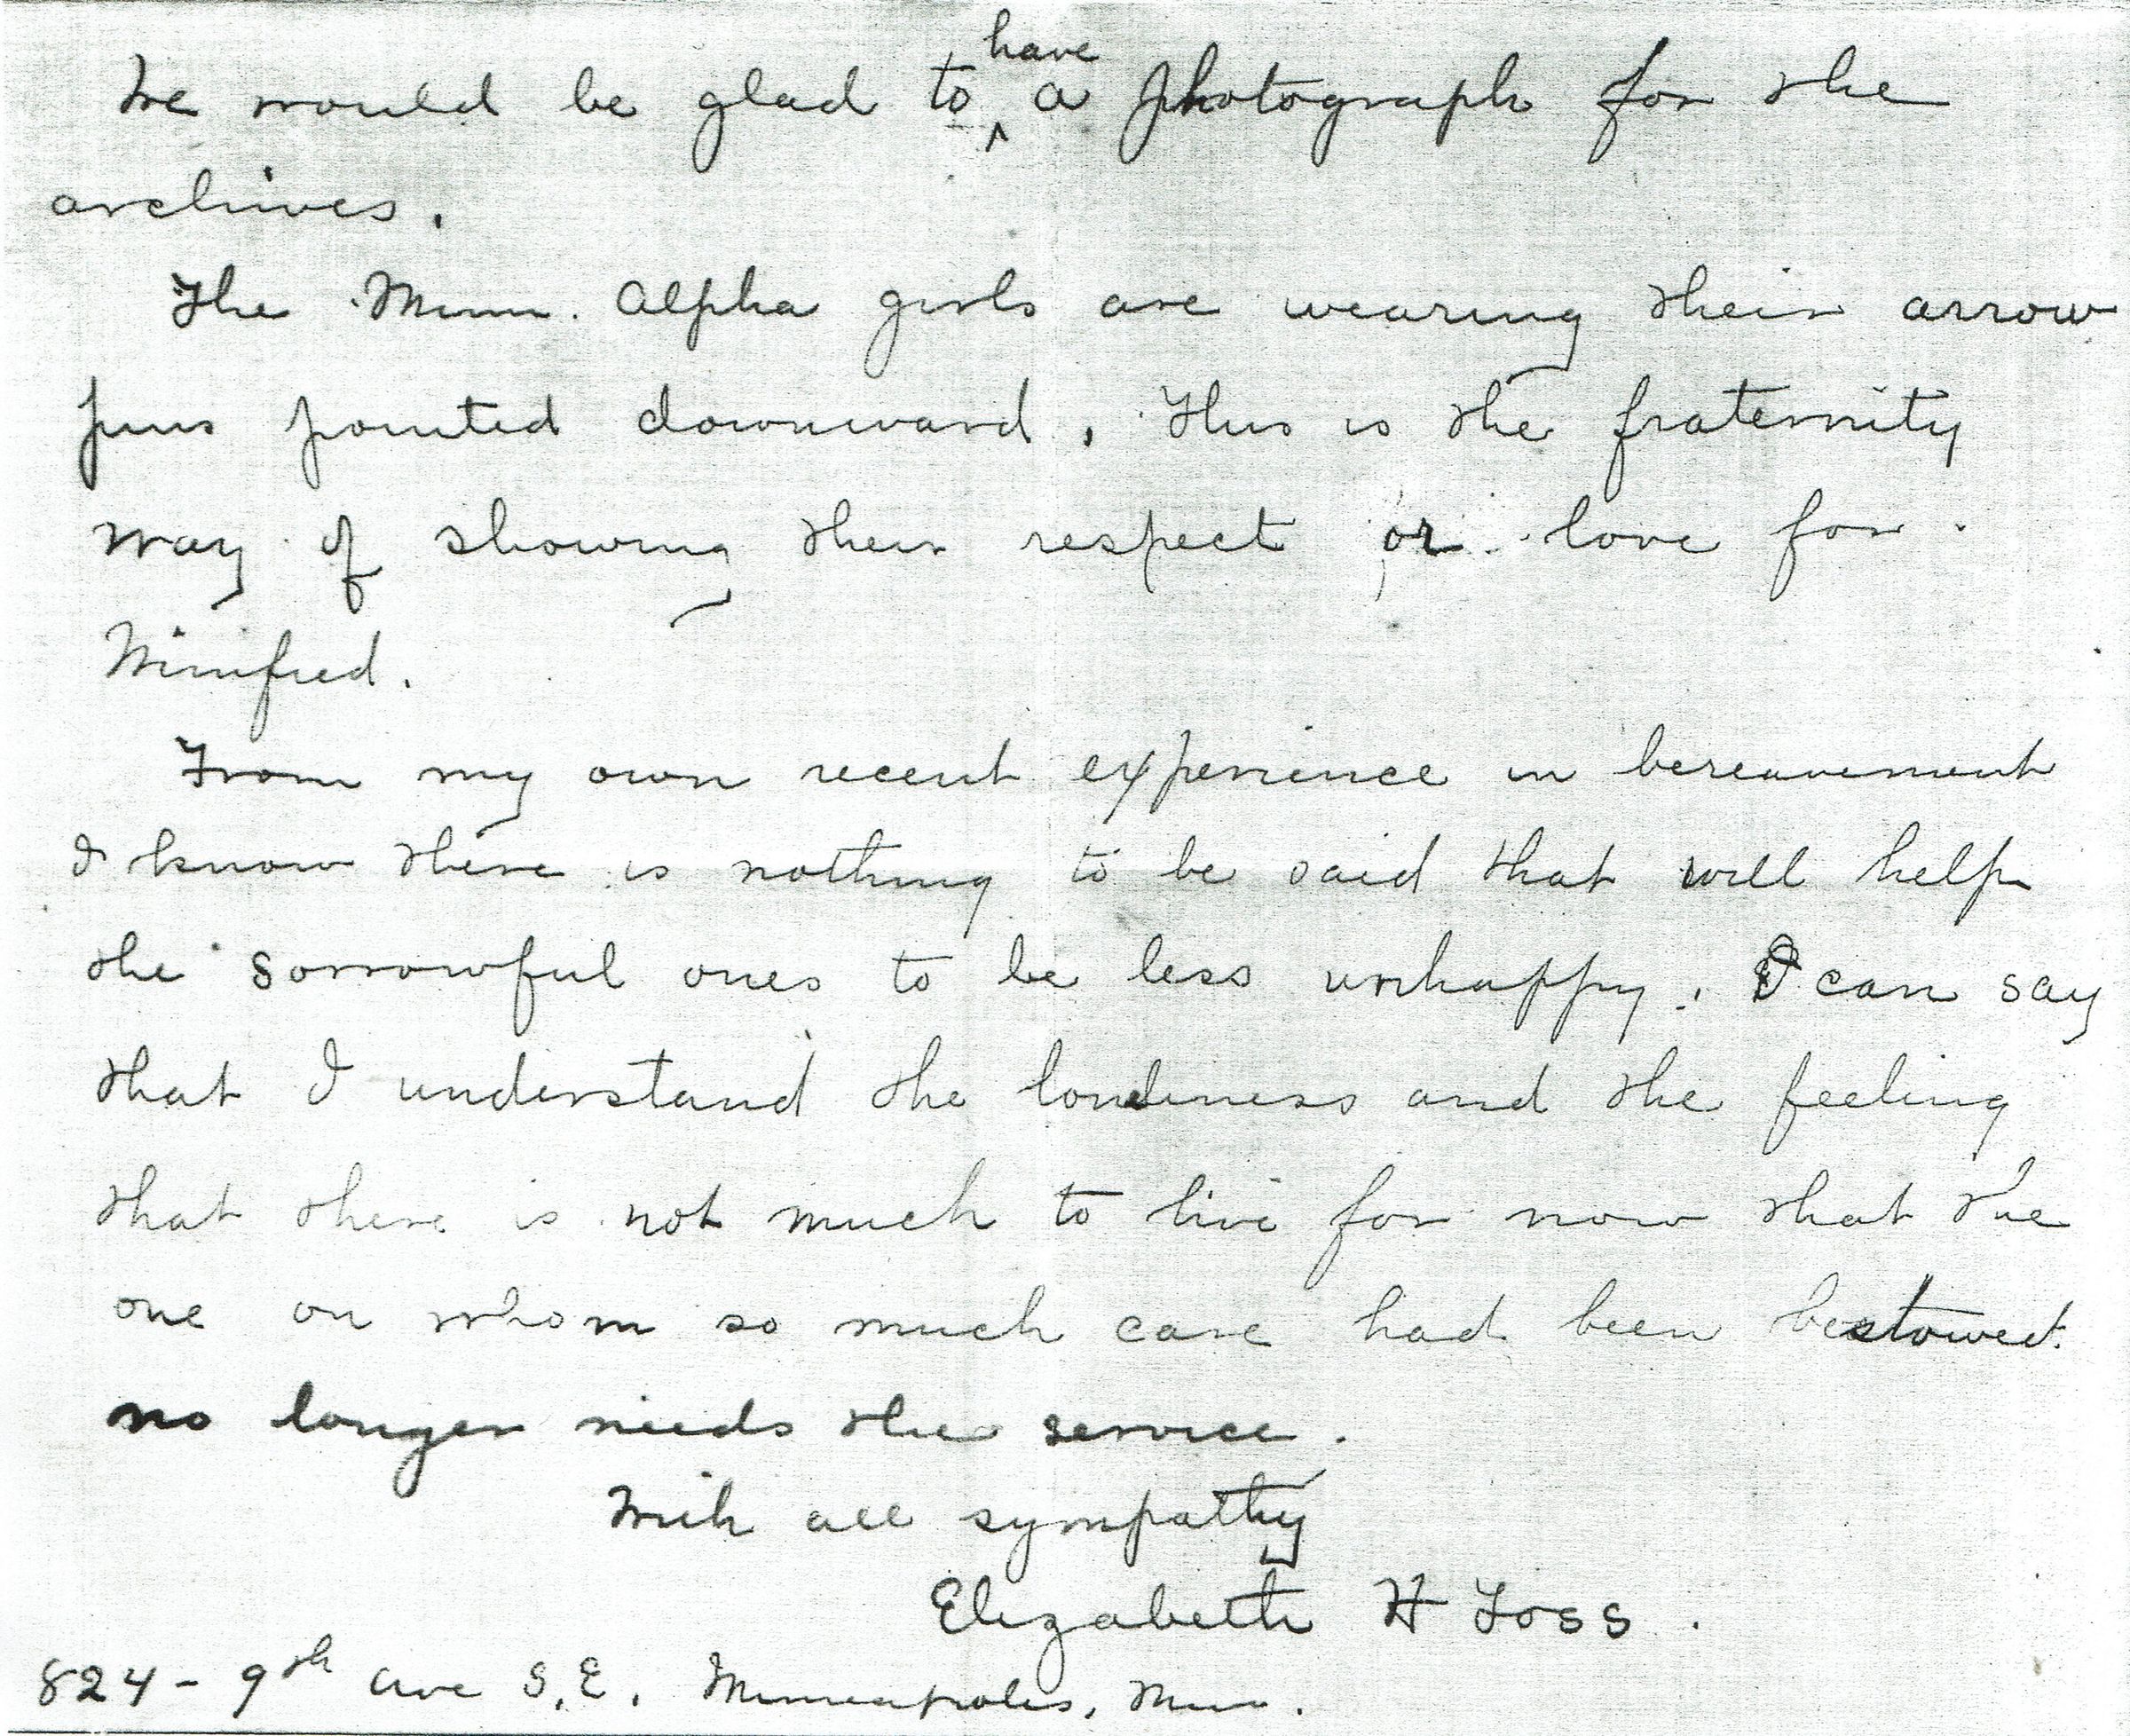 We would be glad to have a photograph for the
archives.
The Minn. Alpha girls are wearing their arrow
pins pointed downward. This is the fraternity
way of showing their respect or love for
Winifred.
From my own recent experience in bereavement
I know there is nothing to be said that will help
the sorrowful ones to be less unhappy. I can say
that I understand the loneliness and the feeling
that there is not much to live for now that the
one on whom so much care had been bestowed
no longer needs the service.
With all sympathy
Elizabeth H Foss.
824 - 9th Ave S.E. Minneapolis, Minn.